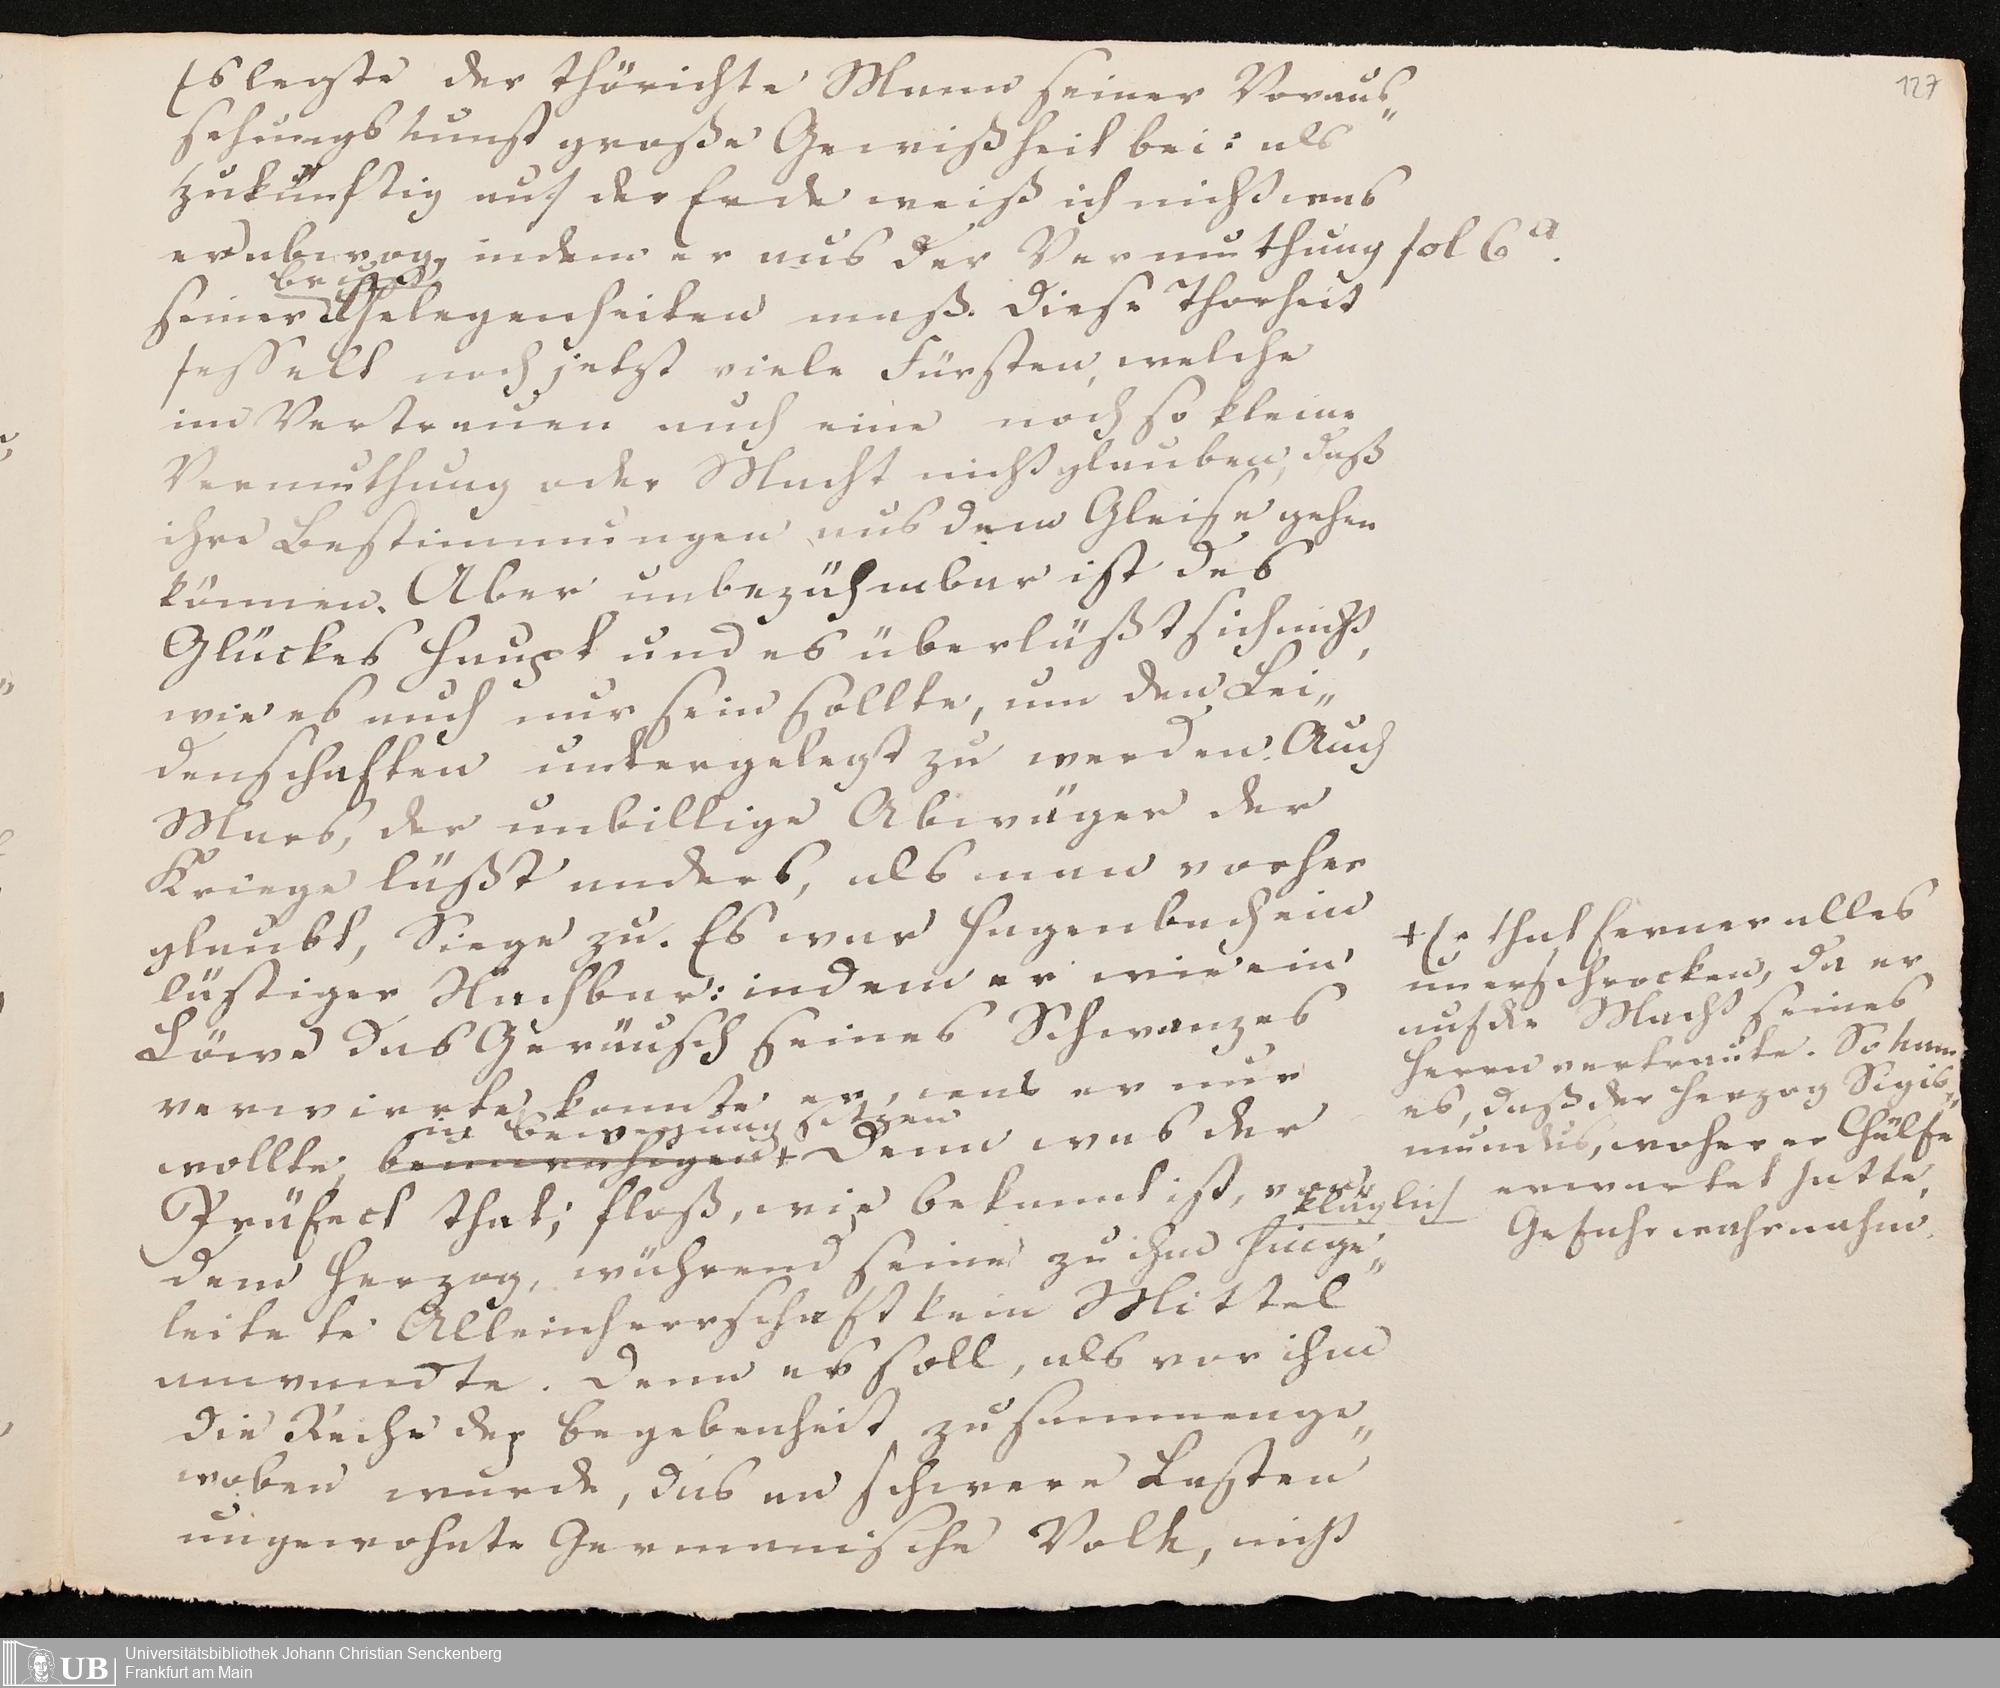 127
Es legte der thörichte Mann seiner Voraus„
sehungskunst große Gewißheit bei: als
zukünftig auf der Erde weiß ich nicht was
er abwog, indem er aus der Vermuthung fol 6a.
seiner Gelegenheiten maß. Diese Thorheit
fesselt noch jetzt viele Fürsten, welche
im Vertrauen auch eine noch so kleine
Vermuthung oder Macht nicht glauben, daß
ihre Bestimmungen aus dem Gleise gehen
können. Aber unbezähmbar ist des
Glückes Haupt und es überläßt sich nicht,
wie es auch nur sein sollte, um den Lei„
denschaften untergelegt zu werden. Auch
Mars, der unbillige Abwäger der
Kriege läßt anders, als man vorher
glaubt, Siege zu. Es war Hagenbach ein
lästiger Nachbar: indem er wie ein
Löwe das Geräusch seines Schwanzes
verwirrte, konnte er, was er nur
in Bewegung setzen
wollte, beunruhigen + Denn was der
Präfect that; floß, wie bekannt ist, von
kläglich
dem Herzog, während seine zu ihm hinge„
leitete Alleinherrschaft kein Mittel
anwandte. Denn es soll, als vor ihm
die Reihe der Begebenheit zusammenge„
woben wurde, das an schwere Lasten
ungewohnte Germanische Volk, nicht
+ Er that ferner alles
unerschrocken, da er
auf die Macht seines
Herrn vertraute. So kam
es, daß der Herzog Sigis„
mundus, woher er Hülfe
erwartet hatte,
Gefahr wahrnahm.
Universitätsbibliothek Johann Christian Senckenberg
Frankfurt am Main
UB